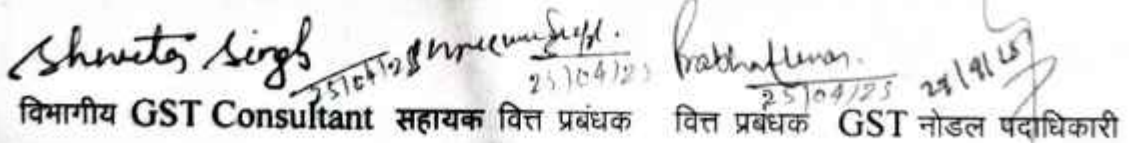 Shweta Singh
25/04/25 25/04/25 25/04/25
विभागीय GST Consultant सहायक वित्त प्रबंधक वित्त प्रबंधक GST नोडल पदाधिकारी